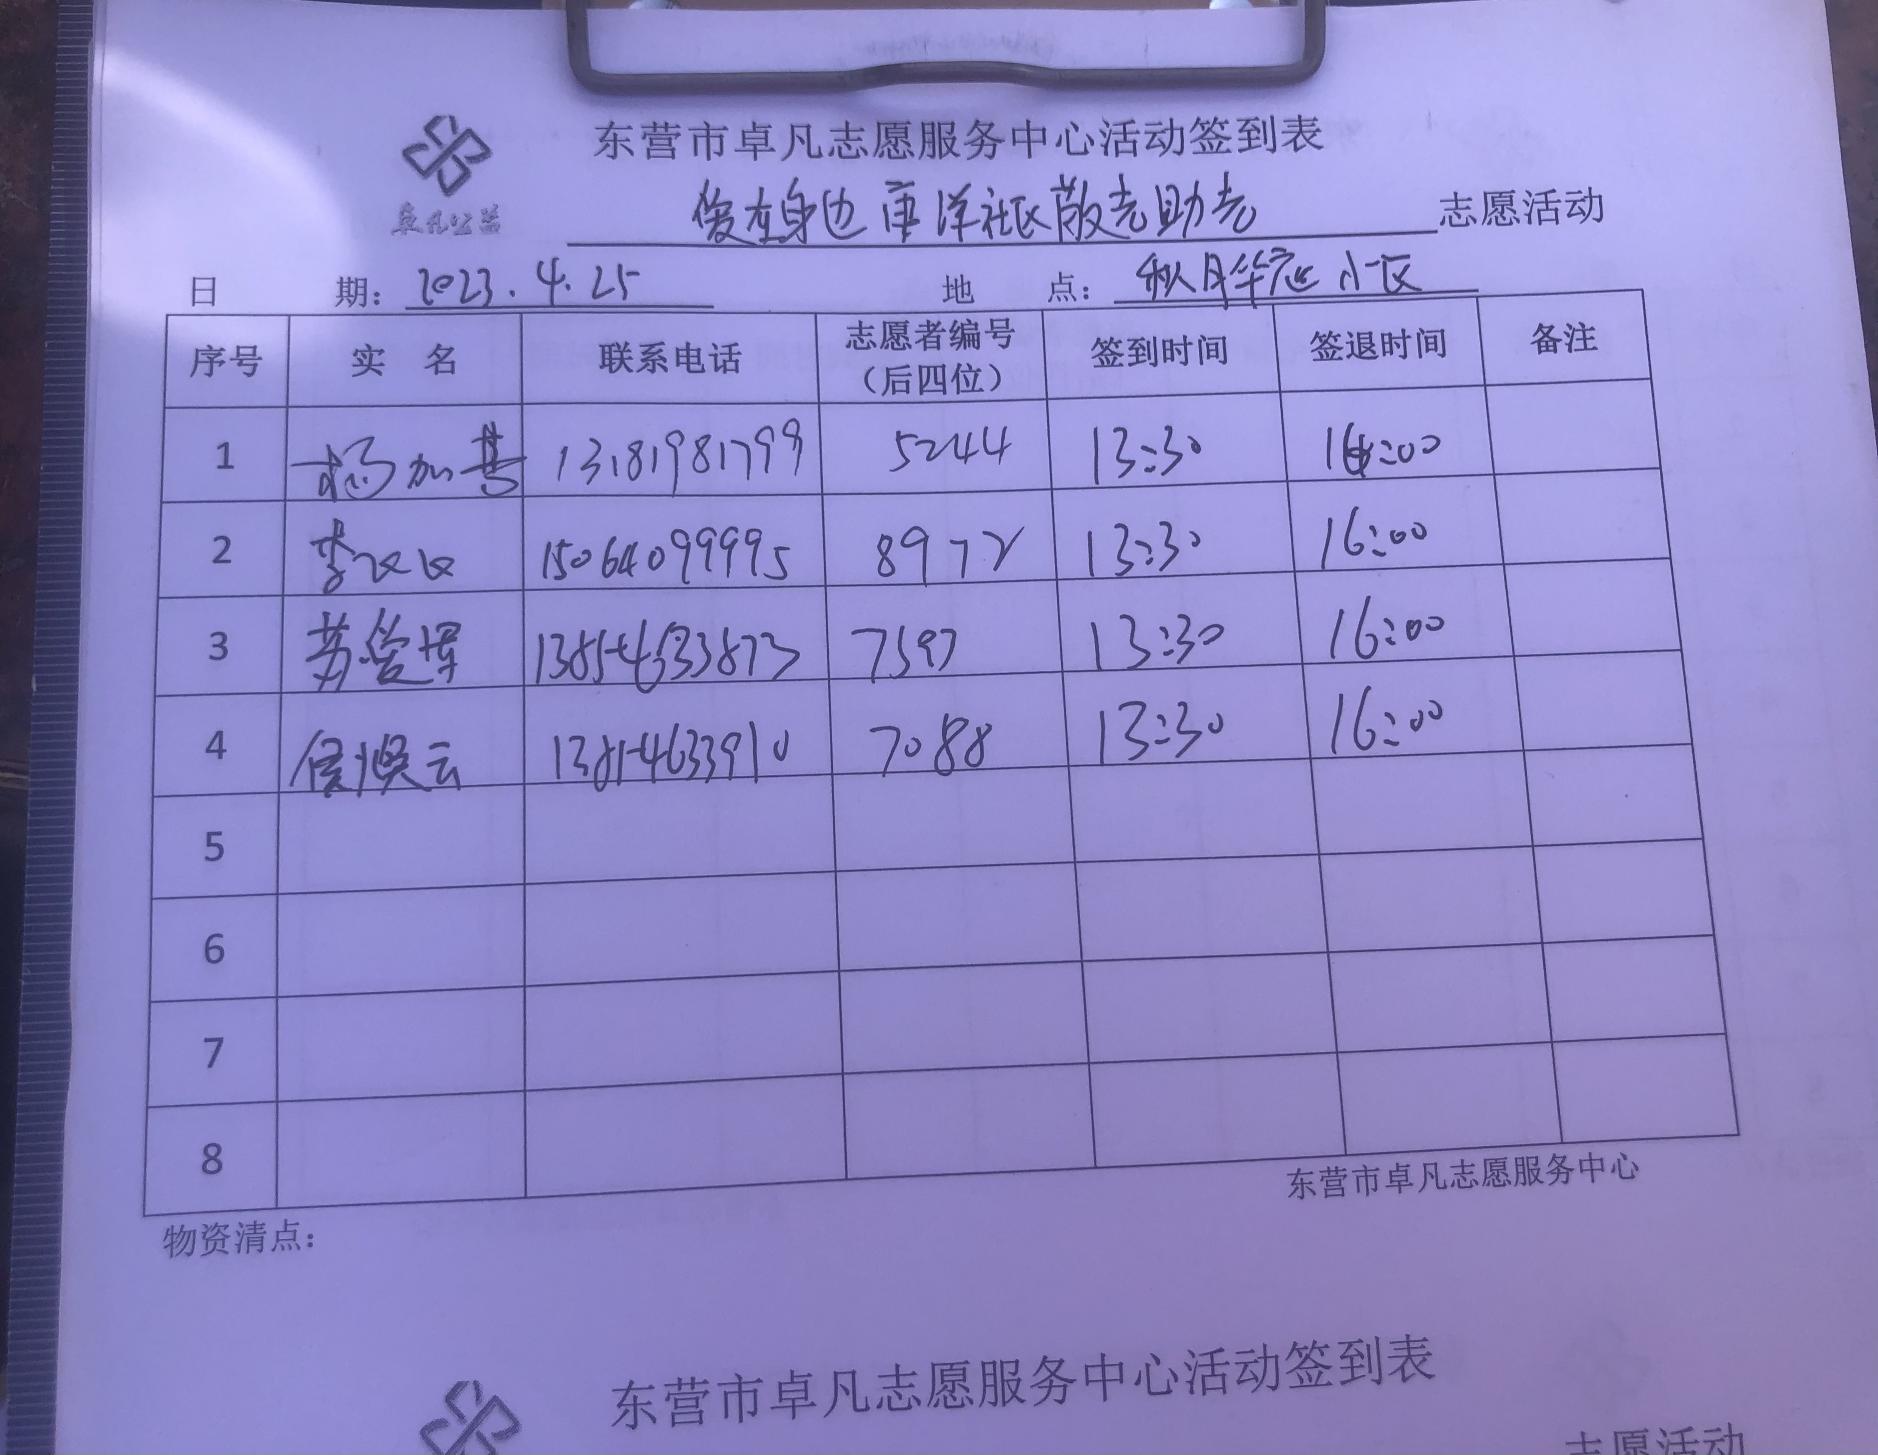 东营市卓凡志愿服务中心活动签到表
卓凡公益
爱在身边 海洋社区敬老助老 志愿活动
日 期: 2023.4.25 地 点: 秋月华庭小区
序号 实 名 联系电话 志愿者编号（后四位） 签到时间 签退时间 备注
1 杨加 13181981799 5244 13:30 16:00
2 李 15064099995 8972 13:30 16:00
3 苏爱军 13854633873 7597 13:30 16:00
4 侯焕云 13854633910 7088 13:30 16:00
5
6
7
8
东营市卓凡志愿服务中心
物资清点：
东营市卓凡志愿服务中心活动签到表
志愿活动